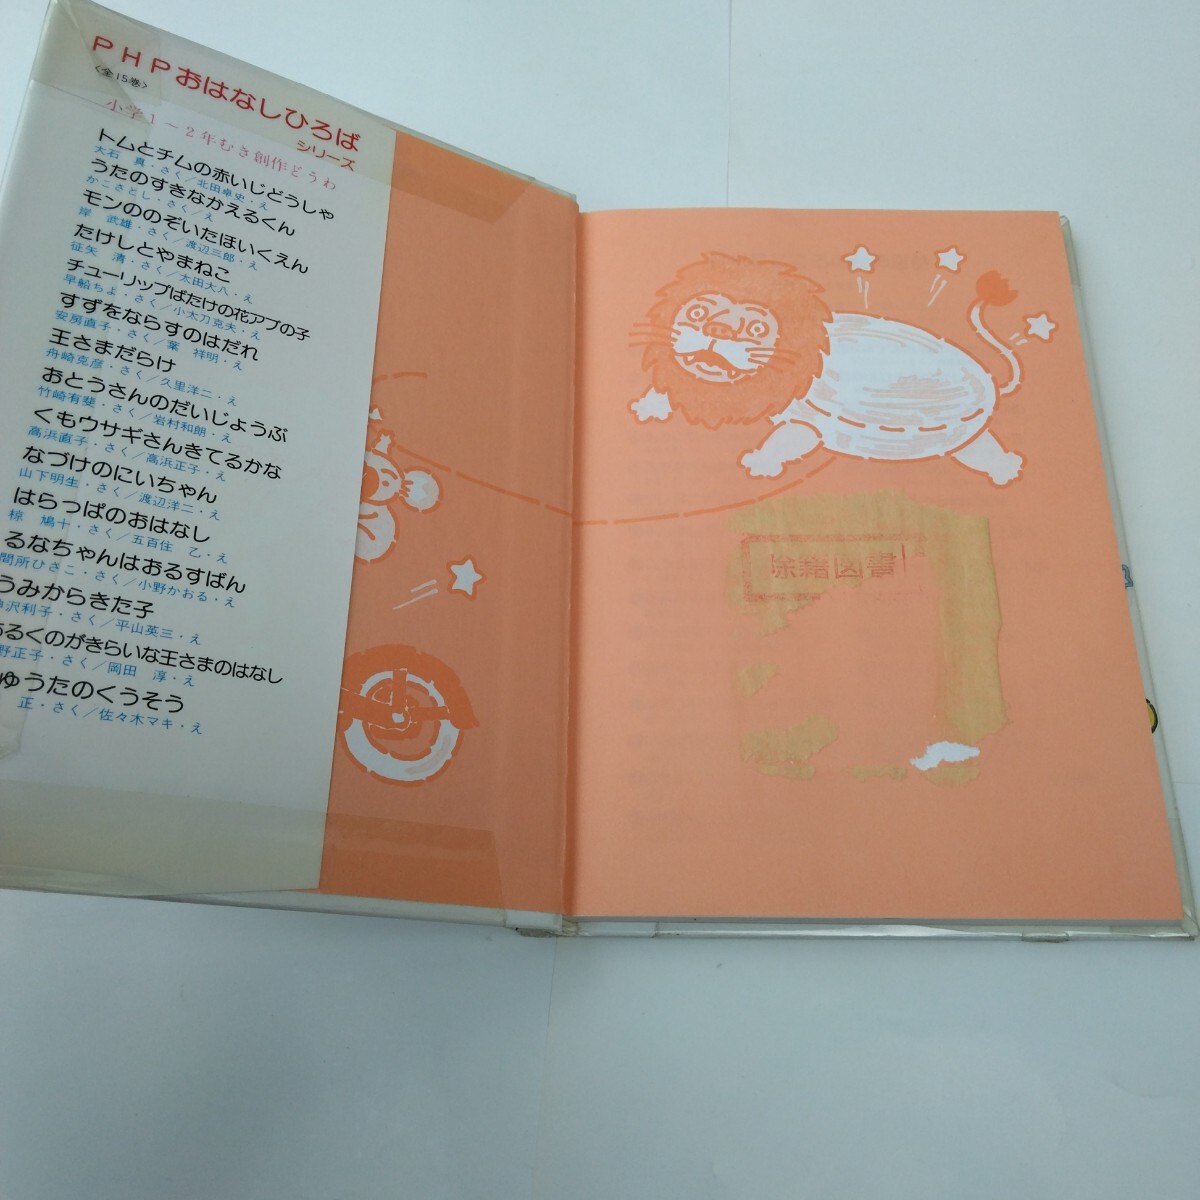 PHPおはなしひろば
シリーズ
〈全15巻〉
小学1〜2年むき創作どうわ
トムとチムの赤いじどうしゃ
大石 真・さく／北田卓史・え
うたのすきなかえるくん
かこさとし・さく／え
モンののぞいたほいくえん
岸 武雄・さく／渡辺三郎・え
たけしとやまねこ
征矢 清・さく／太田大八・え
チューリップばたけの花アブの子
早船ちよ・さく／小太刀克夫・え
すずをならすのはだれ
安房直子・さく／葉 祥明・え
王さまだらけ
舟崎克彦・さく／久里洋二・え
おとうさんのだいじょうぶ
竹崎有斐・さく／岩村和朗・え
くもウサギさんきてるかな
高浜直子・さく／高浜正子・え
なづけのにいちゃん
山下明生・さく／渡辺洋二・え
はらっぱのおはなし
椋 鳩十・さく／五百住 乙・え
るなちゃんはおるすばん
間所ひさこ・さく／小野かおる・え
うみからきた子
沢利子・さく／平山英三・え
るくのがきらいな王さまのはなし
野正子・さく／岡田 淳・え
ゅうたのくうそう
正・さく／佐々木マキ・え
除籍図書